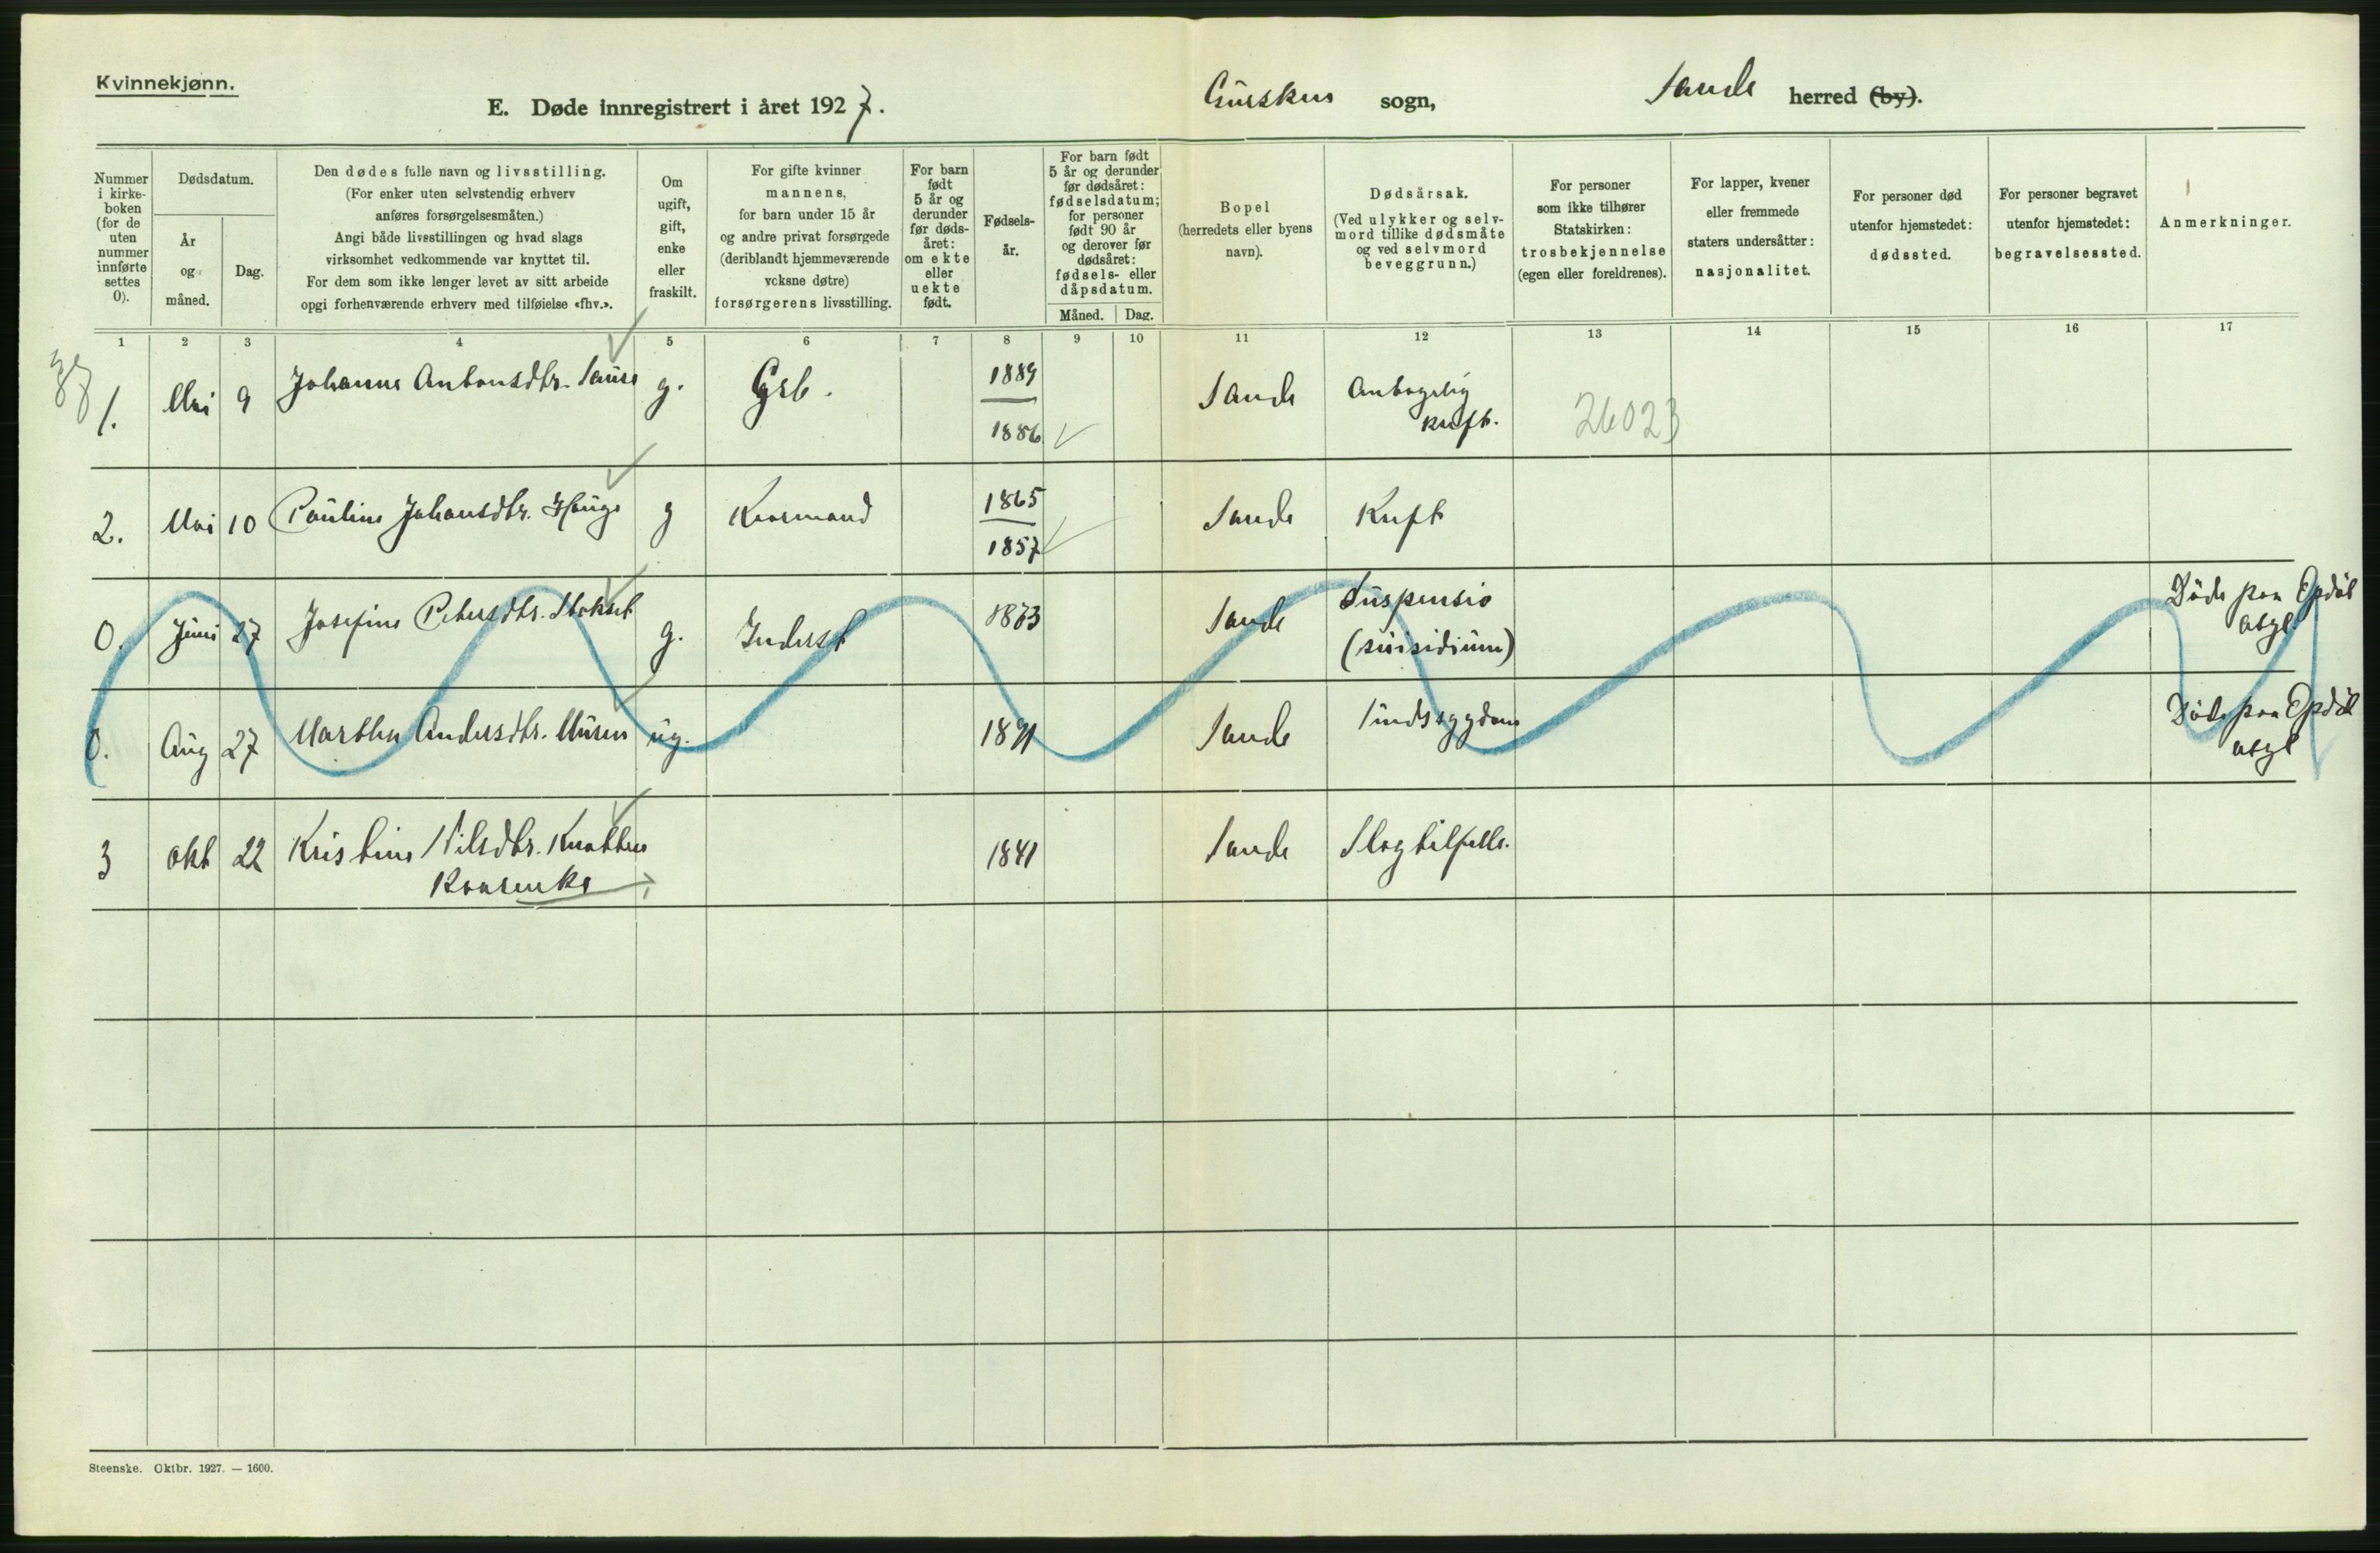 Kvinnekjønn.
E. Døde innregistrert i året 1927.
Gurskøn sogn,
Sande herred (by).
Nummer i kirke-boken (for de uten nummer innførte settes 0).
Dødsdatum.
År og måned.
Dag.
Den dødes fulle navn og livsstilling.
(For enker uten selvstendig erhverv
anføres forsørgelsesmåten.)
Angi både livsstillingen og hvad slags
virksomhet vedkommende var knyttet til.
For dem som ikke lenger levet av sitt arbeide
opgi forhenværende erhverv med tilføielse «fhv.».
Om
ugift,
gift,
enke
eller
fraskilt.
For gifte kvinner
mannens,
for barn under 15 år
og andre privat forsørgede
(deriblandt hjemmeværende
vcksne døtre)
forsørgerens livsstilling.
For barn
født
5 år og
derunder
før døds-
året:
om ekte
eller
uekte
født.
Fødsels-
år.
For barn født
5 år og derunder
før dødsåret:
fødselsdatum;
for personer
født 90 år
og derover før
dødsåret:
fødsels- eller
dåpsdatum.
Måned. Dag.
Bopel
(herredets eller byens
navn).
Dødsårsak.
(Ved ulykker og selv-
mord tillike dødsmåte
og ved selvmord
beveggrunn.)
For personer
som ikke tilhører
Statskirken:
trosbekjennelse
(egen eller foreldrenes).
For lapper, kvener
eller fremmede
staters undersåtter:
nasjonalitet.
For personer død
utenfor hjemstedet:
dødssted.
For personer begravet
utenfor hjemstedet:
begravelsessted.
Anmerkninger.
1 2 3 4 5 6 7 8 9 10 11 12 13 14 15 16 17
1. Mai 9 Johanne Antonsdtr. g. Grb. 1889 Sande Antagelig
1886 kreft. 26023
2. Mai 10 Pauline Johansdtr. Hauge g 1865 Sande Kreft
1857
0. Juni 27 Josefine Petersdtr. Stokset g. Inderst 1873 Sande Suspensio Døde paa Opdøl
(suisidium) asyl
0. Aug 27 Marthe Andersdtr. ug. 1891 Sande Sindssygdom Døde paa Opdøl
asyl
3 okt 22 Kristine Nilsdtr. 1841 Sande Slagtilfelle.
Steenske. Oktbr. 1927. — 1600.